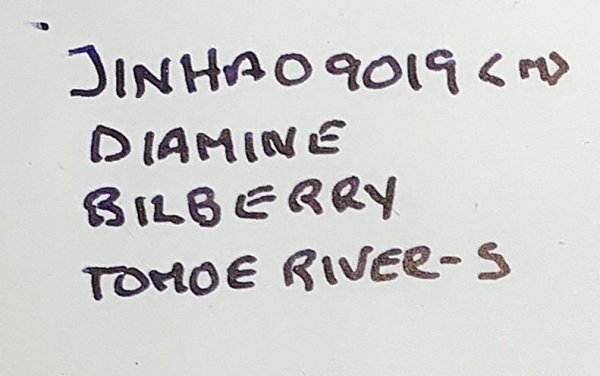 JINHAO 9019 <M>
DIAMINE
BILBERRY
TOMOE RIVER-S